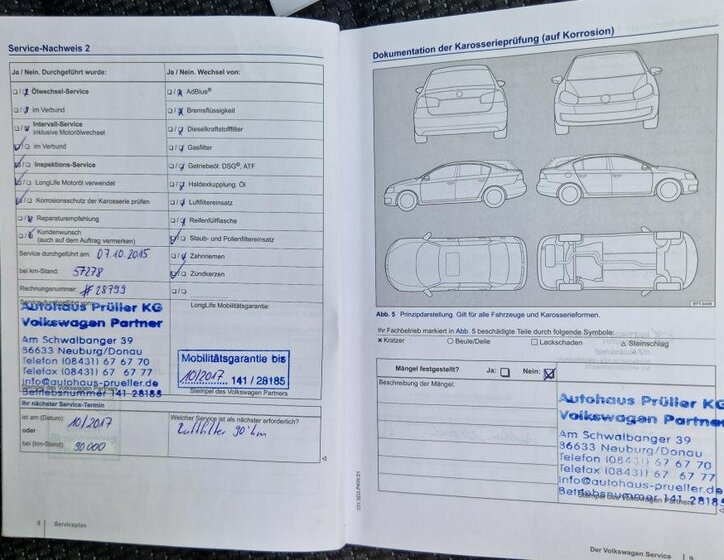 Service-Nachweis 2
Ja / Nein. Durchgeführt wurde:
Ja / Nein. Wechsel von:
Ölwechsel-Service
im Verbund
Intervall-Service
inklusive Motorölwechsel
im Verbund
Inspektions-Service
LongLife Motoröl verwendet
Korrosionsschutz der Karosserie prüfen
Reparaturempfehlung
Kundenwunsch
(auch auf dem Auftrag vermerken)
AdBlue®
Bremsflüssigkeit
Dieselkraftstofffilter
Gasfilter
Getriebeöl: DSG®, ATF
Haldexkupplung: Öl
Luftfiltereinsatz
Reifenfüllflasche
Staub- und Pollenfiltereinsatz
Zahnriemen
Zündkerzen
Service durchgeführt am: 07.10.2015
bei km-Stand: 57278
Rechnungsnummer: # 28799
Service durchgeführt von:
Autohaus Prüller KG
Volkswagen Partner
Am Schwalbanger 39
86633 Neuburg/Donau
Telefon (08431) 67 67 70
Telefax (08431) 67 67 77
info@autohaus-prueller.de
Betriebsnummer 141 28185
Stempel des Volkswagen Partners
LongLife Mobilitätsgarantie:
Mobilitätsgarantie bis
10/2017 141 / 28185
Stempel des Volkswagen Partners
Ihr nächster Service-Termin
ist am (Datum) 10/2017
oder
bei (km-Stand): 90000
Welcher Service ist als nächster erforderlich?
Luftfilter 90'km
8 Serviceplan
Dokumentation der Karosserieprüfung (auf Korrosion)
BTT-0449
Abb. 5 Prinzipdarstellung. Gilt für alle Fahrzeuge und Karosserieformen.
Ihr Fachbetrieb markiert in Abb. 5 beschädigte Teile durch folgende Symbole:
× Kratzer ○ Beule/Delle □ Lackschaden △ Steinschlag
Mängel festgestellt? Ja: Nein:
Beschreibung der Mängel:
Autohaus Prüller KG
Volkswagen Partner
Am Schwalbanger 39
86633 Neuburg/Donau
Telefon (08431) 67 67 70
Telefax (08431) 67 67 77
info@autohaus-prueller.de
Betriebsnummer 141 28185
Stempel des Volkswagen Partners
Der Volkswagen Service 9